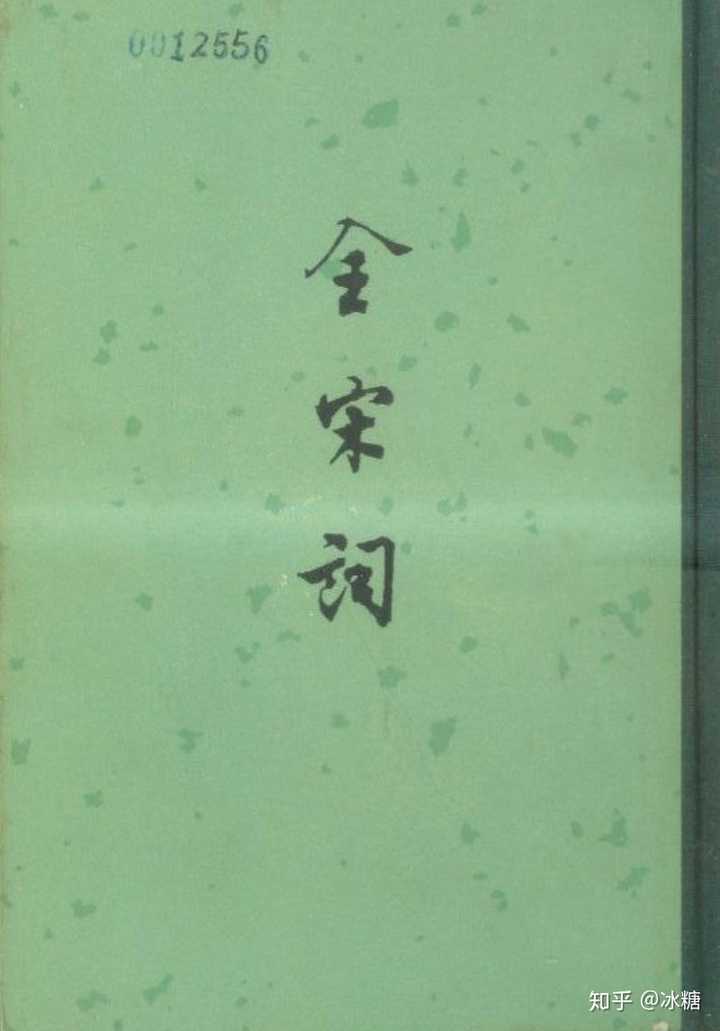 0012556
全
宋
词
知乎 @冰糖